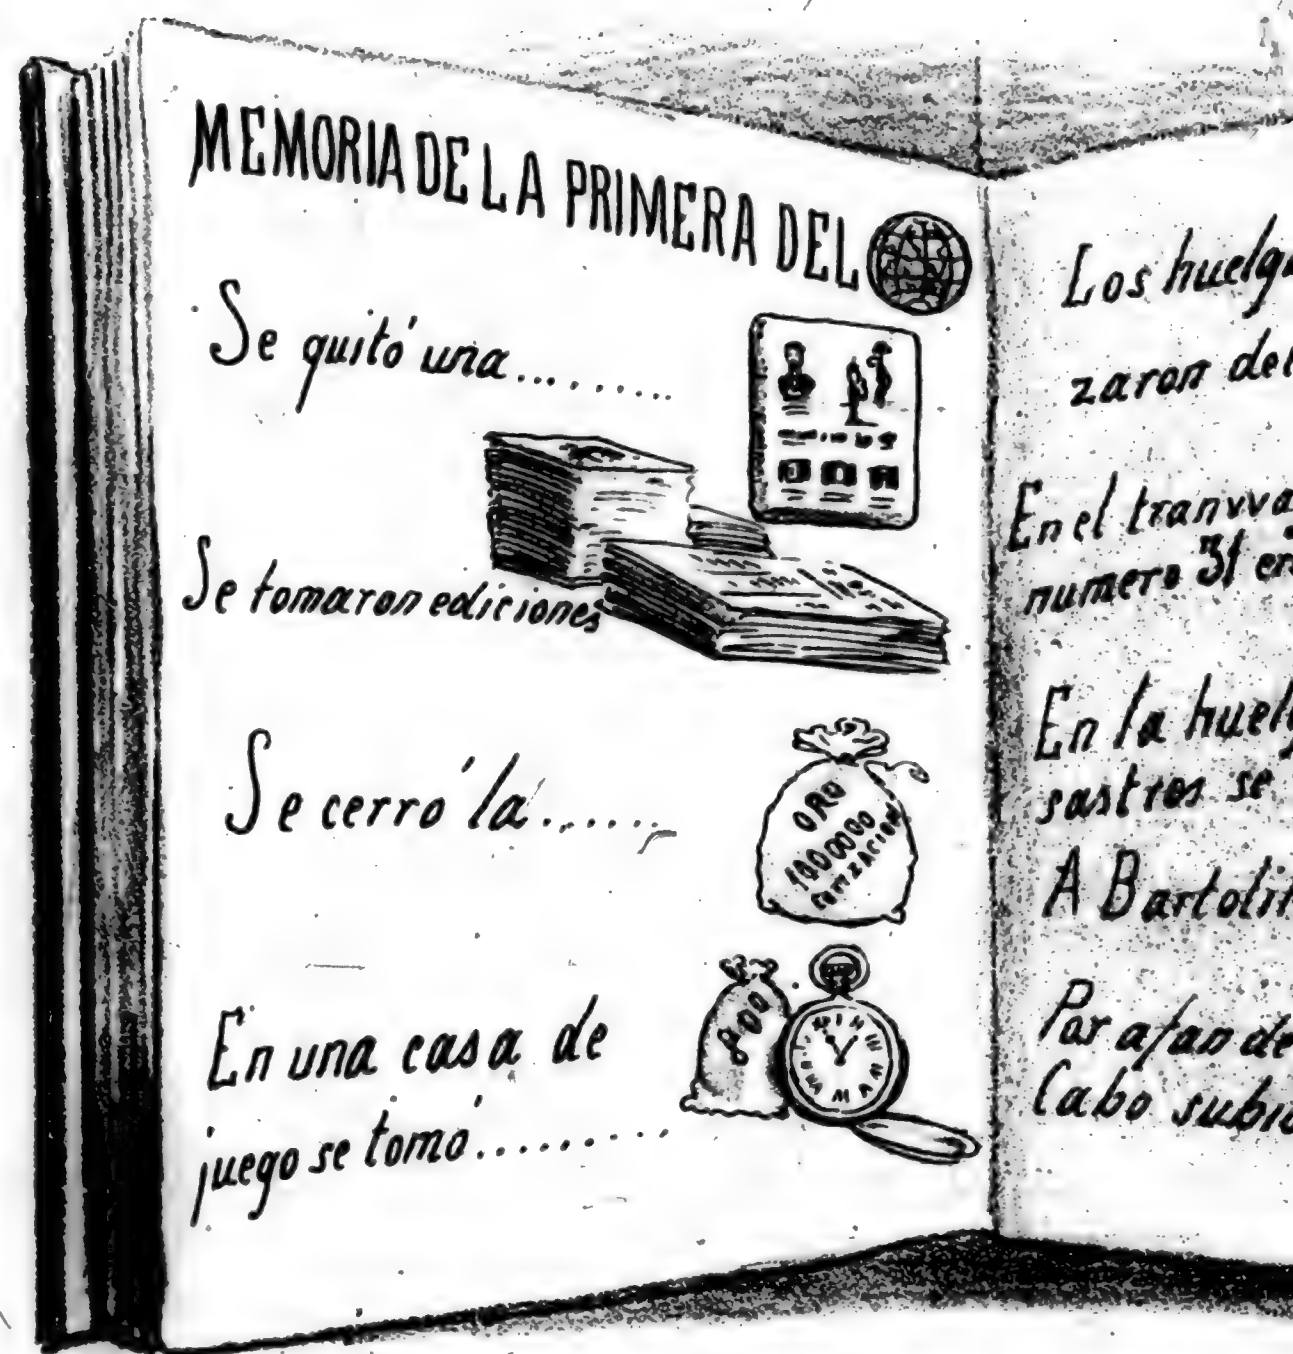 MEMORIA DE LA PRIMERA DEL
Se quitó una.........
Se tomaron ediciones
Se cerró la.......
ORO
1000000
COTIZACION
En una casa de
juego se tomó.........
Los huelg
zaron del
En el tranvva
numero 31 en
En la huelg
sastres se
A Bartolin
Por afan de
Cabo subio